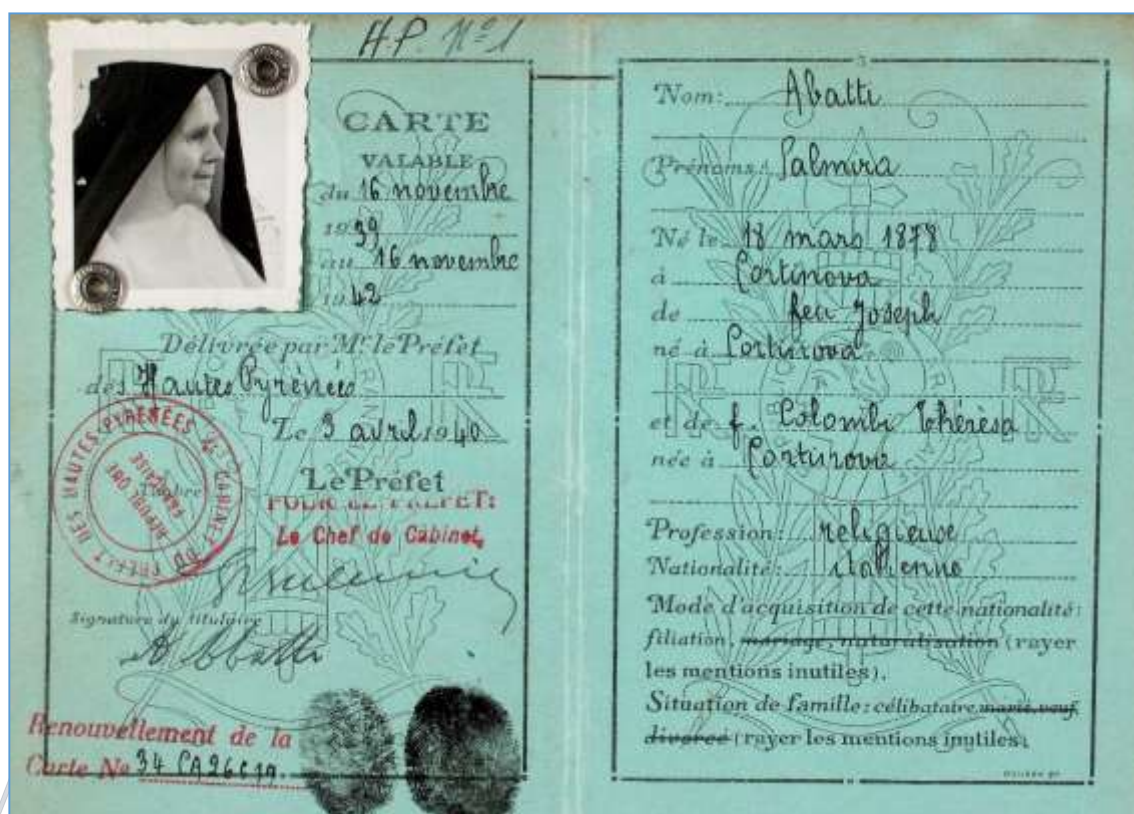 H.P. Nº 1
CARTE
VALABLE
du 16 novembre
1939
au 16 novembre
1942
Délivrée par Mr. le Préfet
des Hautes Pyrénées
Le 3 avril 1940
Le Préfet
POUR LE PREFET:
Le Chef de Cabinet,
CABINET DU PRÉFET DES HAUTES-PYRÉNÉES
RÉPUBLIQUE FRANÇAISE
Timbre
Signature du titulaire
A Abatti
Renouvellement de la
Carte No 34 CA26619
3
Nom: Abatti
Prénoms: Palmira
Né le 18 mars 1878
à Cortinova
de feu Joseph
né à Cortinova
et de f. Colombi Thérèsa
née à Cortinova
Profession: religieuse
Nationalité: italienne
Mode d'acquisition de cette nationalité:
filiation, mariage, naturalisation (rayer
les mentions inutiles).
Situation de famille: célibataire, marié, veuf,
divorcé (rayer les mentions inutiles)